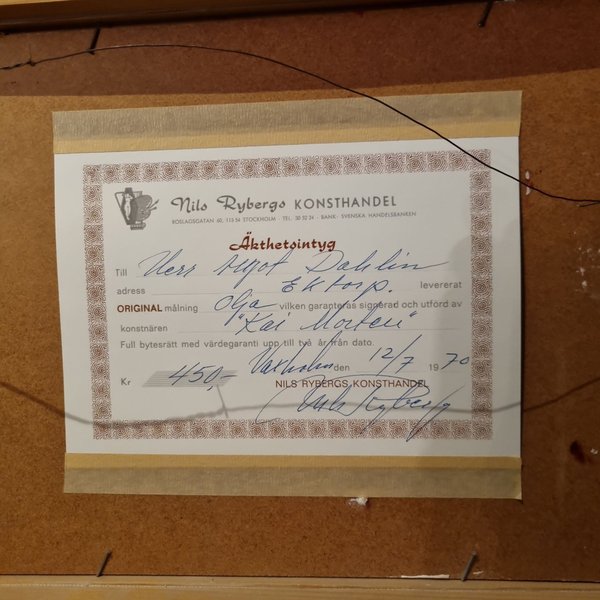 Nils Rybergs KONSTHANDEL
ROSLAGSGATAN 60, 113 54 STOCKHOLM · TEL. 30 52 24 · BANK: SVENSKA HANDELSBANKEN
Äkthetsintyg
Till Herr Dahlin
adress Ektorp. levererat
ORIGINAL målning Olja vilken garanteras signerad och utförd av
konstnären "Kai Morten"
Full bytesrätt med värdegaranti upp till två år från dato.
Vaxholm den 12/7 1970
Kr 450,- NILS RYBERGS KONSTHANDEL
Nils Ryberg